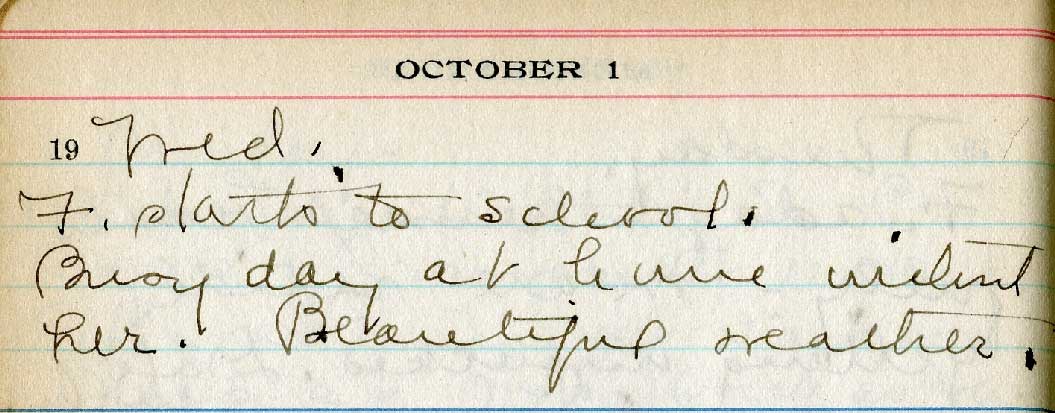 OCTOBER 1
19 Wed.
F. starts to school.
Busy day at home without
her. Beautiful weather.